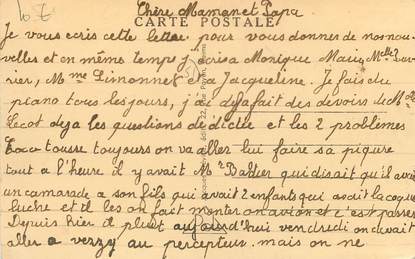 Chère Maman et Papa
CARTE POSTALE
Je vous ecris cette lettre pour vous donner de nos nou
velles et en même temps j'ecris a Monique Mairi, Melle
rier, Mme Limonnet a Jacqueline. Je fais du
piano tous les jours, j'ai deja fait des devoirs de Mr
Lecot deja les questions de dictée et les 2 problèmes
Coco tousse toujours on va aller lui faire sa piqure
tout a l'heure il y avait Mr Baltier qui disait qu'il avait
un camarade a son fils qui avait 2 enfants qui avait la coque
luche et il les on fait monter en avion et c'est passer
Depuis hier il pleut aujourd'hui vendredi on devait
aller a verzy au percepteur mais on ne